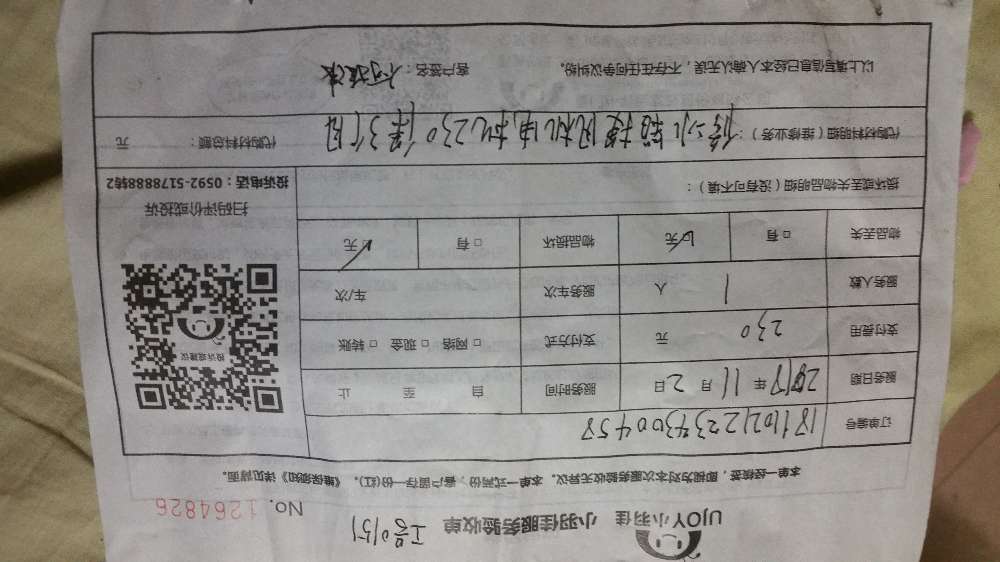 UJOY小羽佳 小羽佳服务验收单 工号0151
No. 1264826
本单一经接签，即视为对本次服务验收无异议。本单一式两份，客户留存一份(红)。《维保须知》详见背面。
订单编号 18110212234300458
服务日期 2017年11月2日 服务时间 自 至 止
支付费用 230 元 支付方式 □网络 □现金 □转账
服务人数 1 人 服务车次 车/次
物品丢失 □有 ☑无 物品损坏 □有 ☑无
投诉或建议
扫码评价或投诉
投诉电话：0592-5178888转2
损坏或丢失物品明细（没有可不填）：
代购材料明细（维修业务）：修冰箱换风机电机230保3个月 代购材料总额： 元
以上填写信息已经本人确认无误，不存在任何争议纠纷。 客户签名：